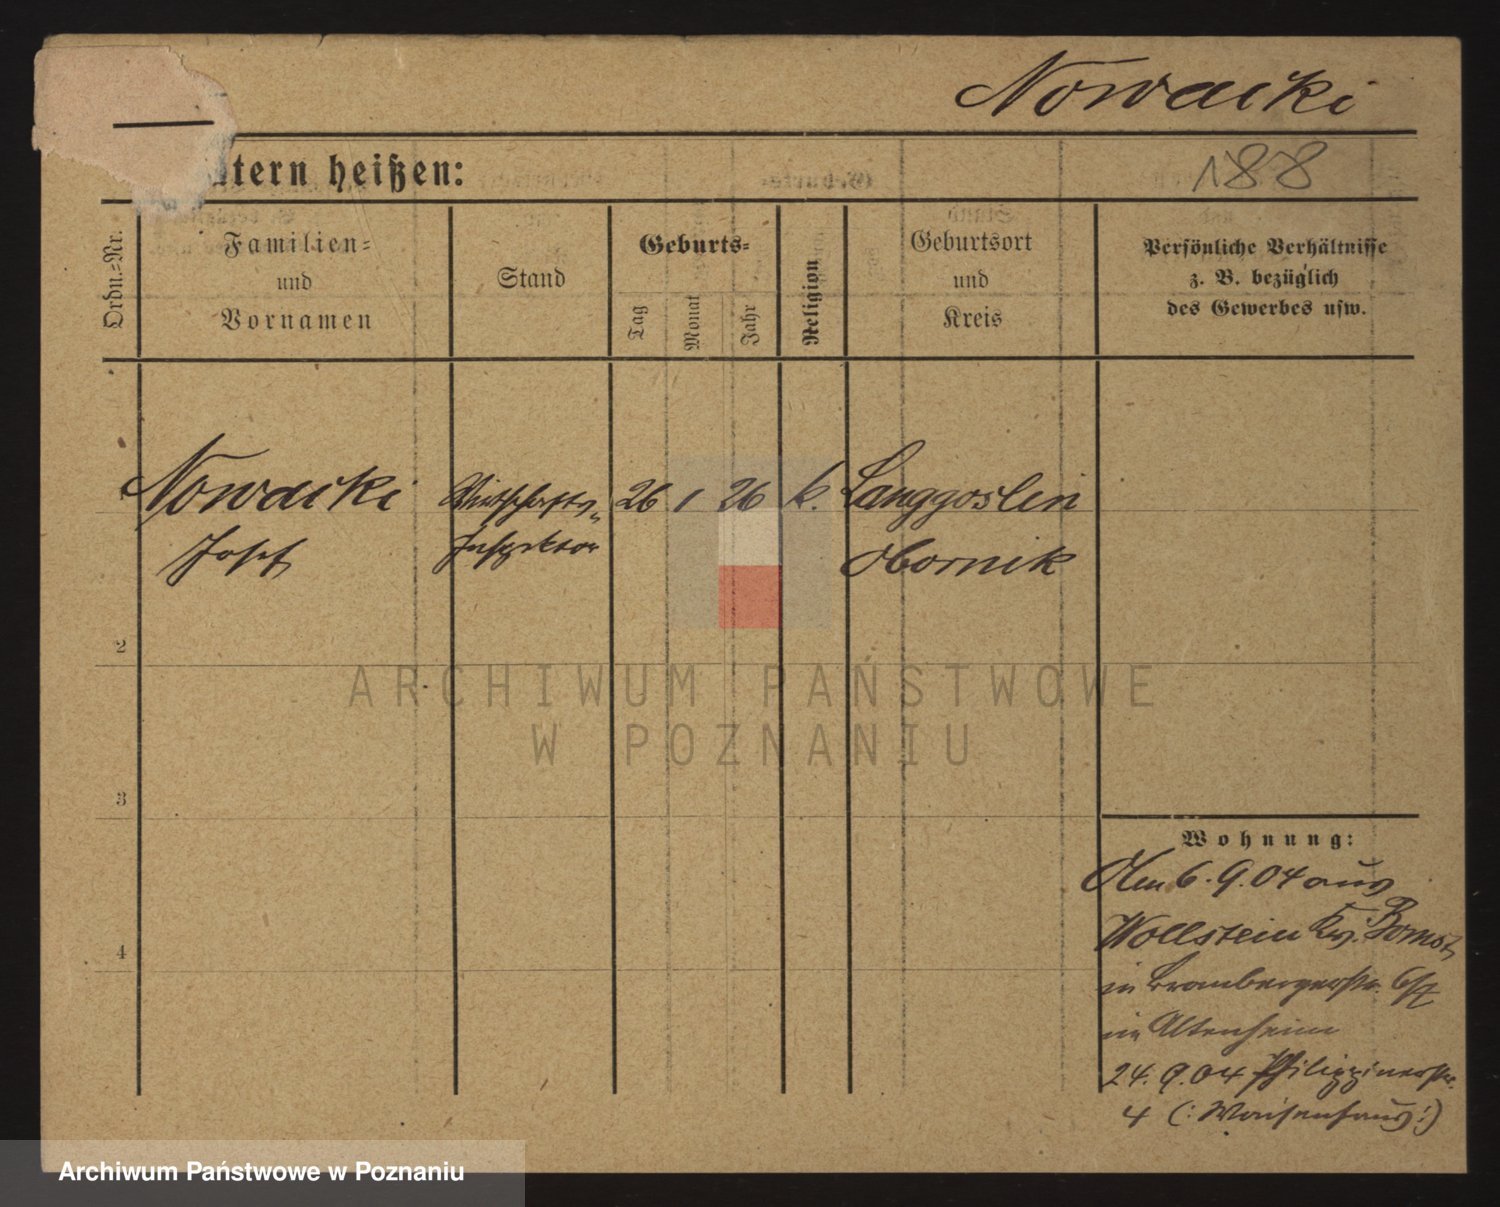 Nowacki
188
tern heißen:
Ordn.=Nr.
Familien=
und
Vornamen
Stand
Geburts=
Tag
Monat
Jahr
Religion
Geburtsort
und
Kreis
Persönliche Verhältnisse
z. B. bezüglich
des Gewerbes usw.
1 Nowacki Wirtschafts- 26 1 26 k. Langgoslin
Josef Inspektor Obornik
2
3
4
Wohnung:
Am 6.9.04 aus
Wollstein Kr. Bomst
in
im Altenheim
24.9.04 Philippinerstr.
4 (: Waisenhaus :)
ARCHIWUM PAŃSTWOWE
W POZNANIU
Archiwum Państwowe w Poznaniu